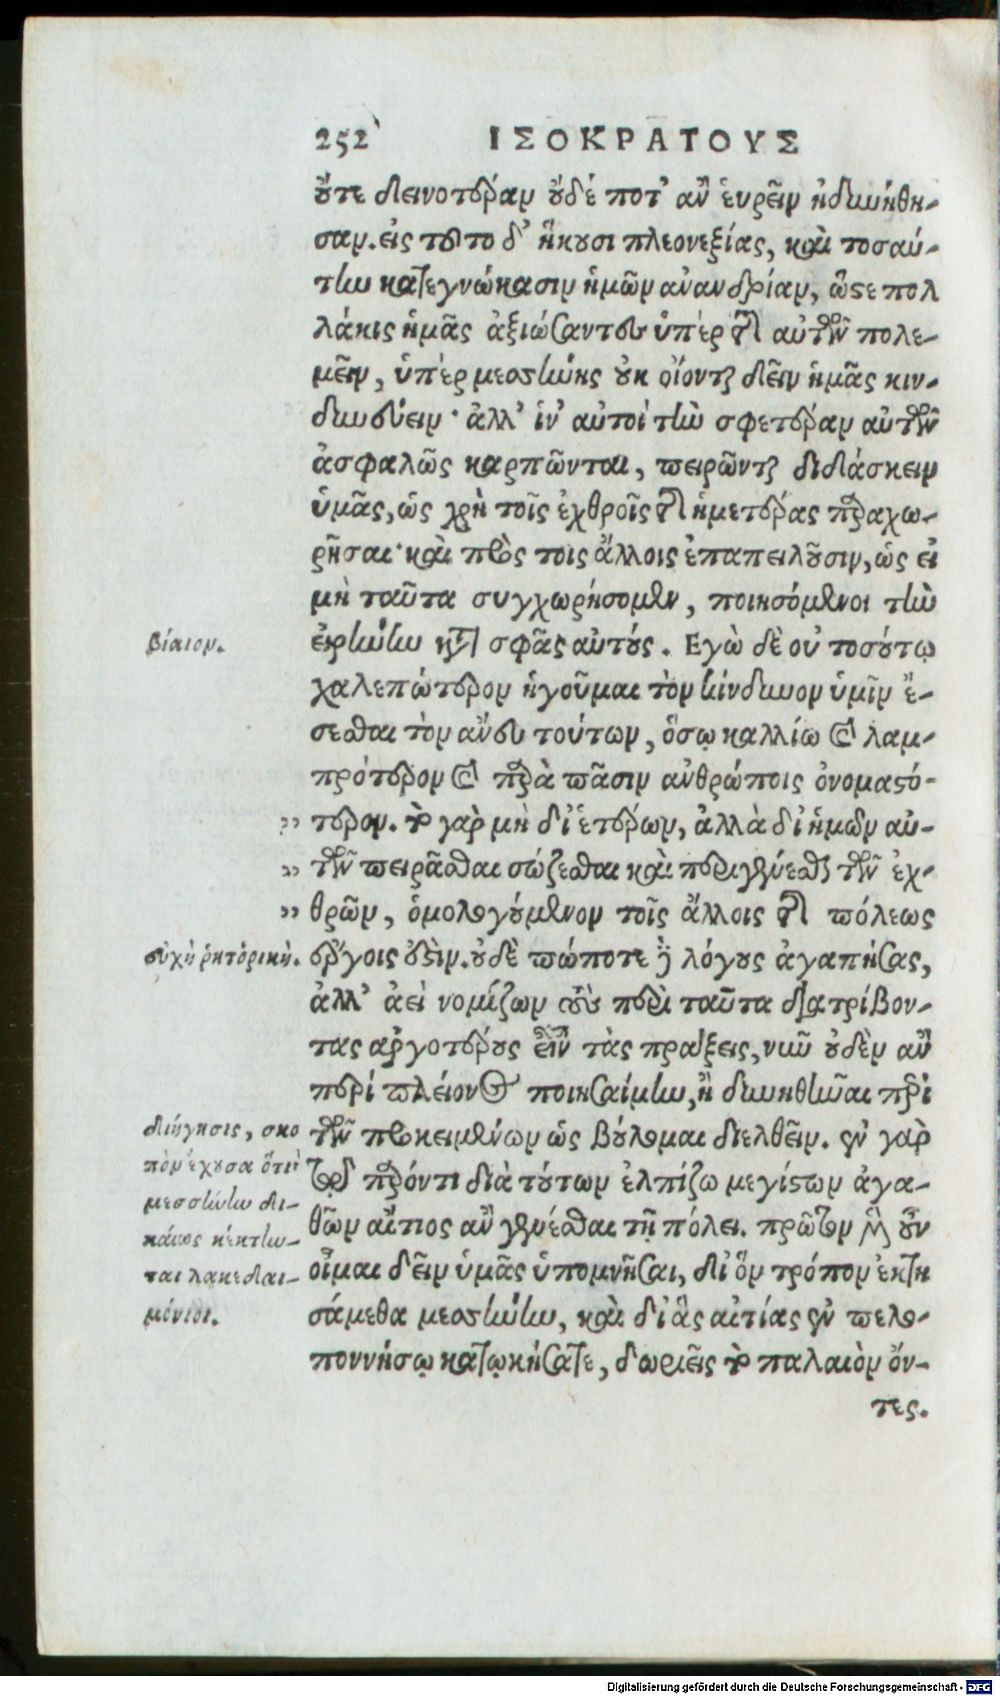 252 ΙΣΟΚΡΑΤΟΥΣ
οὔτε δεινοτέραν οὐδέ ποτ' ἂν εὑρεῖν ἠδυνήθη-
σαν. εἰς τοῦτο δ' ἥκουσι πλεονεξίας, καὶ τοσαύ-
την κατεγνώκασιν ἡμῶν ἀνανδρίαν, ὥστε πολ
λάκις ἡμᾶς ἀξιώσαντες ὑπὲρ τῆς αὐτῶν πολε-
μεῖν, ὑπὲρ μεσσήνης οὐκ οἴονται δεῖν ἡμᾶς κιν-
δυνεύειν· ἀλλ' ἵν' αὐτοὶ τὴν σφετέραν αὐτῶν
ἀσφαλῶς καρπῶνται, πειρῶνται διδάσκειν
ὑμᾶς, ὡς χρὴ τοῖς ἐχθροῖς τῆς ἡμετέρας παραχω-
ρῆσαι· καὶ πρὸς τοις ἄλλοις ἐπαπειλοῦσιν, ὡς εἰ
μὴ ταῦτα συγχωρήσομεν, ποιησόμενοι τὴν
βίαιον.
εἰρήνην κατὰ σφᾶς αὐτούς. Εγὼ δὲ οὐ τοσούτῳ
χαλεπώτερον ἡγοῦμαι τὸν κίνδυνον ὑμῖν ἔ-
σεσθαι τὸν ἄνευ τούτων, ὅσῳ καλλίω καὶ λαμ-
πρότερον καὶ παρὰ πᾶσιν ἀνθρώποις ὀνομαστό-
" τερον. τὸ γὰρ μὴ δι' ἑτέρων, ἀλλὰ δι' ἡμῶν αὐ-
" τῶν πειρᾶσθαι σώζεσθαι καὶ περιγενέσθαι τῶν ἐχ-
" θρῶν, ὁμολογούμενον τοῖς ἄλλοις τῆς πόλεως
εὐχὴ ῥητορική.
ἔργοις ἐστίν. οὐδὲ πώποτε δὲ λόγους ἀγαπήσας,
ἀλλ' ἀεὶ νομίζων τοὺς περὶ ταῦτα διατρίβον-
τας ἀργοτέρους εἶναι τὰς πράξεις, νῦν οὐδὲν ἂν
περὶ πλείονος ποιησαίμην, ἢ δυνηθῆναι περὶ
διήγησις, σκο
πὸν ἔχουσα ὅτι
μεσσήνην δι-
καίως κέκτην-
ται λακεδαι-
μόνιοι.
τῶν προκειμένων ὡς βούλομαι διελθεῖν. ἐν γὰρ
τῷ παρόντι διὰ τούτων ἐλπίζω μεγίστων ἀγα-
θῶν αἴτιος ἂν γενέσθαι τῇ πόλει. πρῶτον μὲν οὖν
οἶμαι δεῖν ὑμᾶς ὑπομνῆσαι, δι' ὃν τρόπον ἐκτη
σάμεθα μεσσήνην, καὶ δι' ἃς αἰτίας ἐν πελο-
ποννήσῳ κατῳκήσατε, δωριεῖς τὸ παλαιὸν ὄν-
τες.
Digitalisierung gefördert durch die Deutsche Forschungsgemeinschaft - DFG